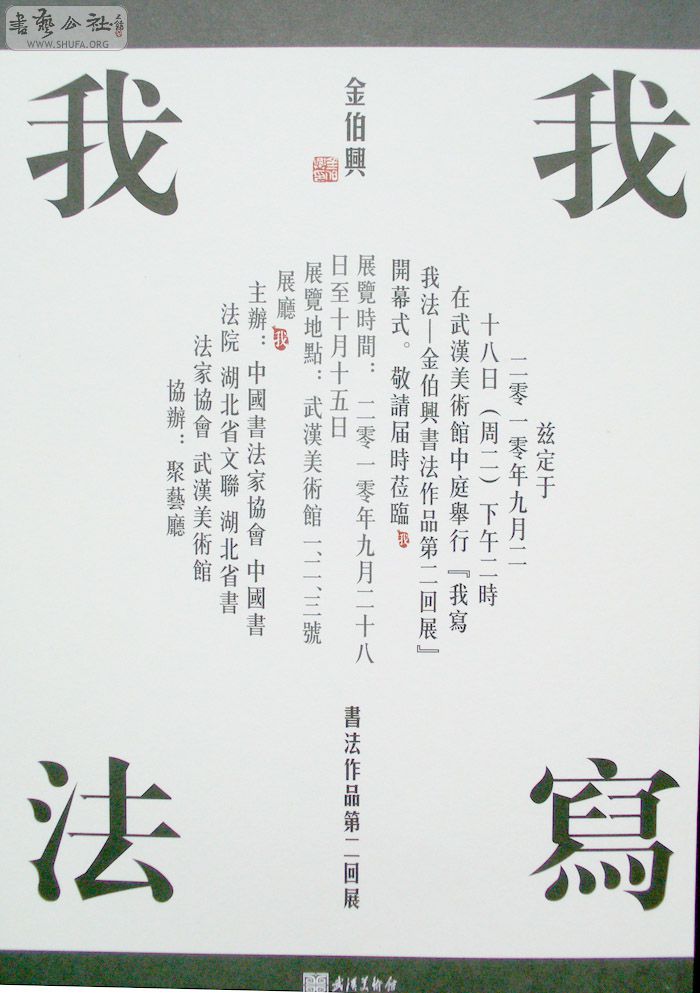 書藝公社
WWW.SHUFA.ORG
我寫
我法
金伯興
書法作品第二回展
兹定于
二零一零年九月二
十八日（周二）下午二時
在武漢美術館中庭舉行『我寫
我法—金伯興書法作品第二回展』
開幕式。敬請届時莅臨 我
展覽時間：二零一零年九月二十八
日至十月十五日
展覽地點：武漢美術館一、二、三號
展廳 我
主辦：中國書法家協會 中國書
法院 湖北省文聯 湖北省書
法家協會 武漢美術館
協辦：聚藝廳
武漢美術館